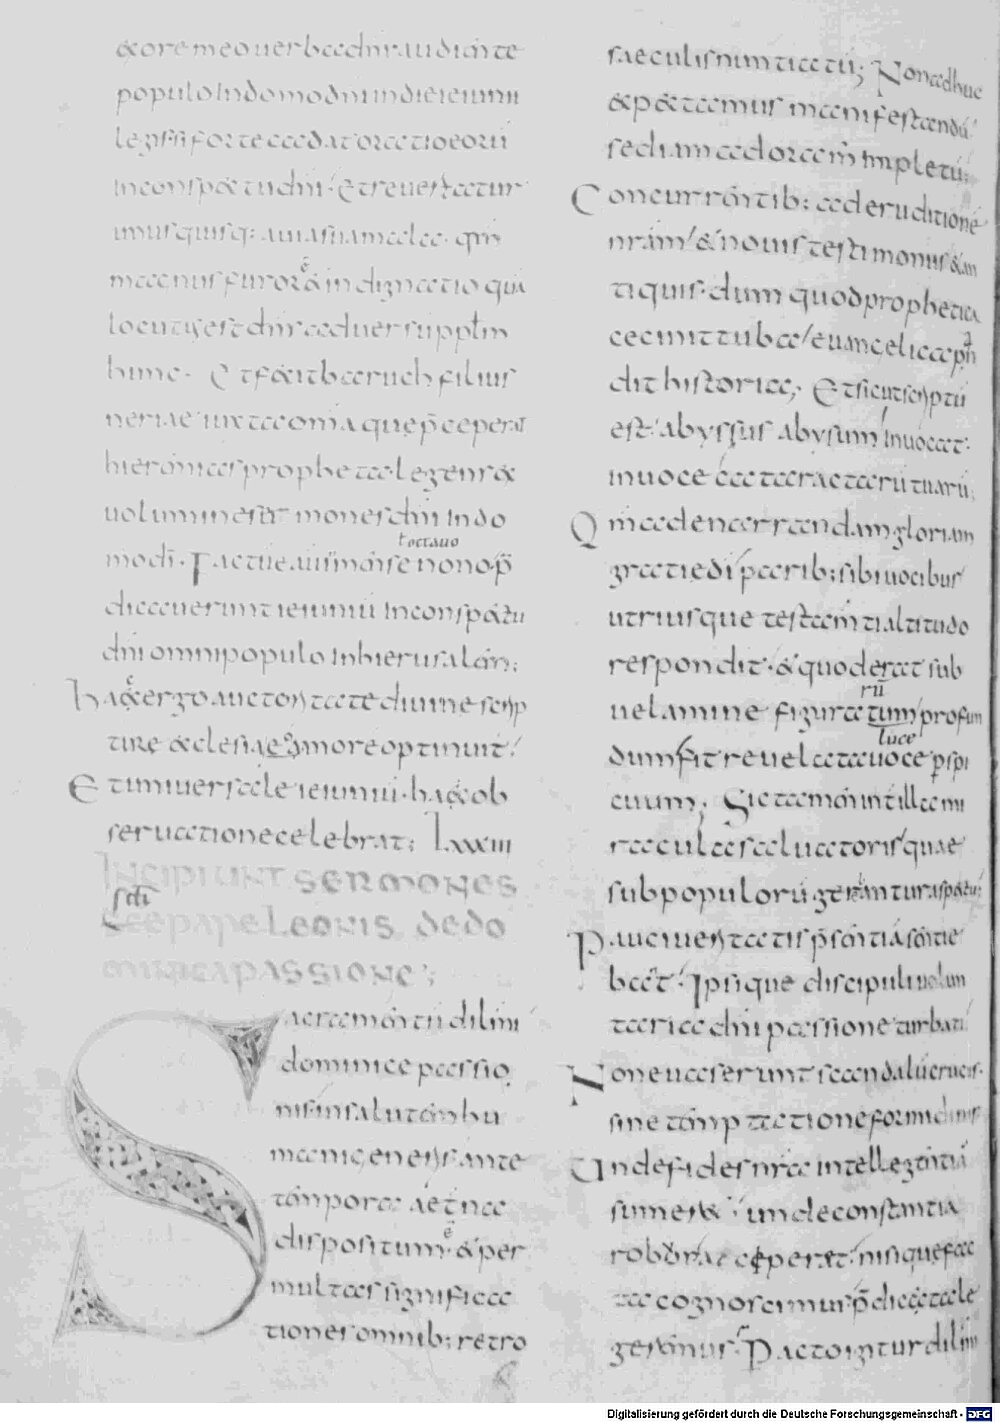 & ore meo uerba dni audiente
populo In domo dni in die ieiunii
legis si forte cadat oratio eorũ
In conspectu dni. Et reuertatur
unusquisq: a uia sua mala. qm̃
magnus furor & indignatio quã
locutus est dns aduersus pplm
hunc. Et fecit baruch filius
neriae iuxta omnia que p̄ceperat
hieremias propheta legens ex
uolumine sermones dni In do
mo dni. Factum e aũ in mense nono p̄
ł octauo
dicauerunt ieiunium In conspectu
dni omni populo In hierusalem;
haec ergo auctoritate diuine scrip
turae ecclesiae more optinuit.
Et uniuersale ieiunium. haec ob
seruatione celebrat: Lxxiii
INCIPIUNT SERMONES
sc̄ti
PAPE LEONIS DE DO
MINICA PASSIONE;
Sacramentũ dilmi
dominice passio
nis in salutem hu
mani generis ante
tempora aeterna
dispositum. & per
multas significa
tiones omnib: retro
saeculis nuntiatũ; Non adhuc
expectamus manifestandũ.
sed iam adoramus Impletũ;
Concurrentib: ad eruditionẽ
nram. & nouis testimoniis & an
tiquis. dum quod prophetica
cecinit tuba euangelica pan
dit historia, Et sicut scriptũ
est. abyssus abyssum Inuocat.
In uoce cataractarũ tuarũ;
Qm ad enarrandam gloriam
gratie di parib: sibi uocibus
utriusque testamenti altitudo
respondit. & quod erat sub
rũ
uelamine figuratum profun
luce
dum fit reuelata uoce perspi
cuum; Sic tamen in illa mi
racula saluatoris quae
sub populorũ gerantur aspectu:
Pauci ueritatis p̄sentiã sentie
bant. Ipsique discipuli uolun
taria dni passione turbati.
Non euaserunt scandalũ crucis.
sine temptatione formidinis.
Unde fides nra intellegentiã
sumeret. unde constantia
robur acciperet. nisi que fac
ta cognoscimus p̄dicta le
geremus. Peractis igitur dilmi